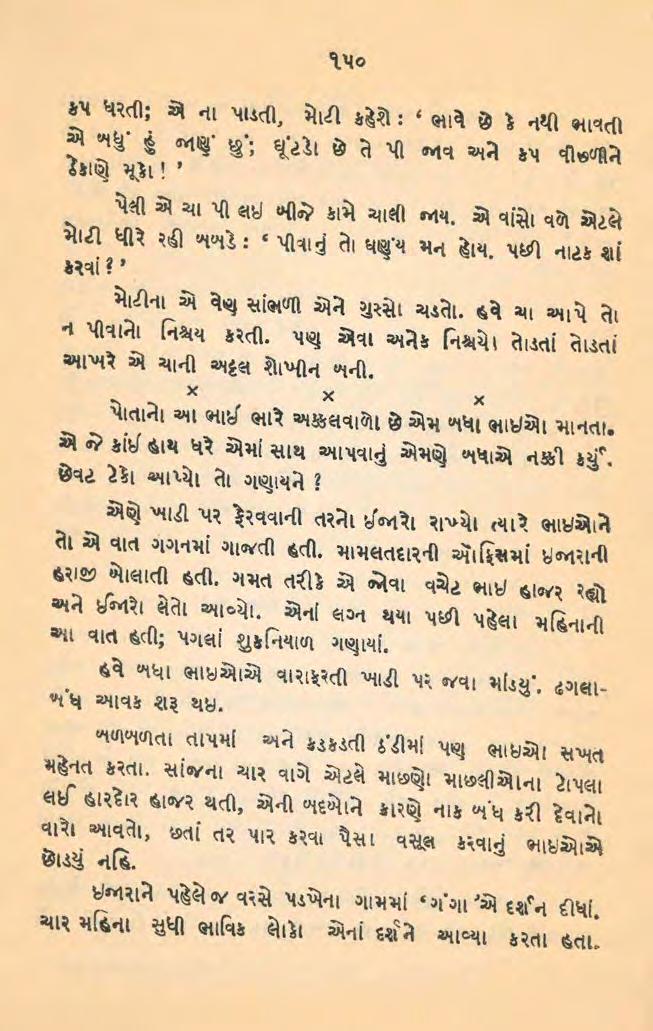 ૧૫૦
કપ ધરતી; એ ના પાડતી, મોટી કહેશે : ‘ ભાવે છે કે નથી ભાવતી
એ બધું હું જાણું છું; ઘૂંટડો છે તે પી જાવ અને કપ વીછળીને
ઠેકાણે મૂકો ! ’
પેલી એ ચા પી લઇ બીજે કામે ચાલી જાય. એ વાંસો વળે એટલે
મોટી ધીરે રહી બબડે : ‘ પીવાનું તો ઘણુંય મન હોય. પછી નાટક શાં
કરવાં ? ’
મોટીના એ વેણ સાંભળી એને ગુસ્સો ચડતો. હવે ચા આપે તો
ન પીવાનો નિશ્ચય કરતી. પણ એવા અનેક નિશ્ચયો તોડતાં તોડતાં
આખરે એ ચાની અટ્ટલ શોખીન બની.
× × ×
પોતાનો આ ભાઈ ભારે અક્કલવાળો છે એમ બધા ભાઇઓ માનતા.
એ જે કાંઈ હાથ ધરે એમાં સાથ આપવાનું એમણે બધાએ નક્કી કર્યું.
છેવટ ટેકો આપ્યો તો ગણાયને ?
એણે ખાડી પર ફેરવવાની તરનો ઈજારો રાખ્યો ત્યારે ભાઇઓને
તો એ વાત ગગનમાં ગાજતી હતી. મામલતદારની ઑફિસમાં ઇજારાની
હરાજી બોલાતી હતી. ગમત તરીકે એ જોવા વચેટ ભાઈ હાજર રહ્યો
અને ઈજારો લેતો આવ્યો. એનાં લગ્ન થયા પછી પહેલા મહિનાની
આ વાત હતી; પગલાં શુકનિયાળ ગણાયાં.
હવે બધા ભાઇઓએ વારાફરતી ખાડી પર જવા માંડયું. ઢગલા-
બંધ આવક શરૂ થઇ.
બળબળતા તાપમાં અને કડકડતી ઠંડીમાં પણ ભાઇઓ સખત
મહેનત કરતા. સાંજના ચાર વાગે એટલે માછણો માછલીઓના ટોપલા
લઈ હારદોર હાજર થતી, એની બદબોને કારણે નાક બંધ કરી દેવાનો
વારો આવતો, છતાં તર પાર કરવા પૈસા વસૂલ કરવાનું ભાઇઓએ
છોડયું નહિ.
ઇજારાને પહેલે જ વરસે પડખેના ગામમાં ‘ ગંગા ’એ દર્શન દીધાં.
ચાર મહિના સુધી ભાવિક લોકો એનાં દર્શને આવ્યા કરતા હતા.